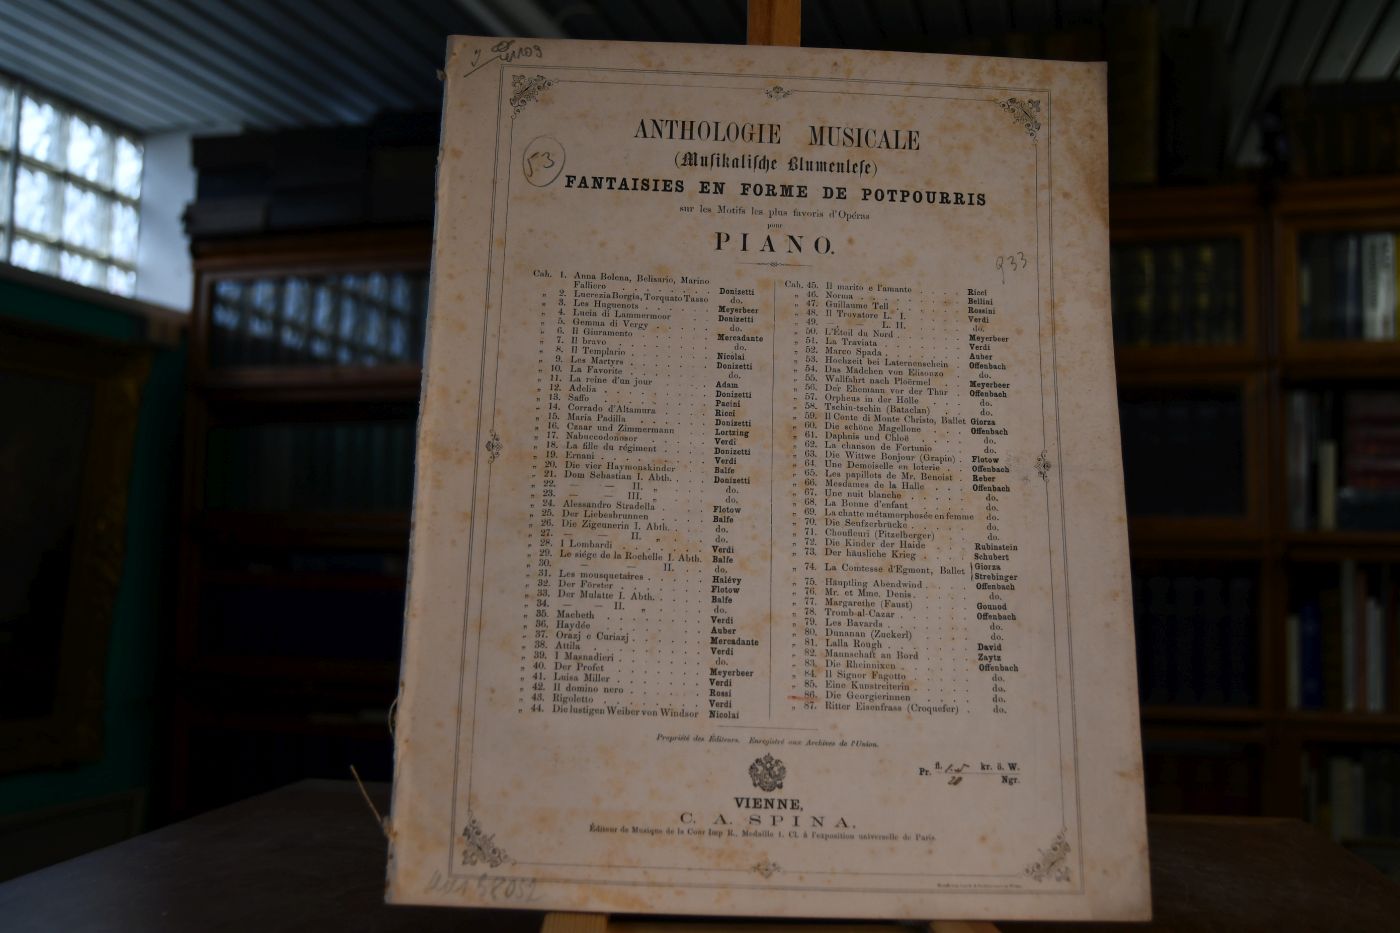 ANTHOLOGIE MUSICALE
(Musikalische Blumenlese)
53
FANTAISIES EN FORME DE POTPOURRIS
sur les Motifs les plus favoris d'Opéras
pour
PIANO.
Q33
Cah. 1. Anna Bolena, Belisario, Marino
Falliero . . . . . . . Donizetti
„ 2. Lucrezia Borgia, Torquato Tasso do.
„ 3. Les Huguenots . . . . . Meyerbeer
„ 4. Lucia di Lammermoor . . . Donizetti
„ 5. Gemma di Vergy . . . . . do.
„ 6. Il Giuramento . . . . . Mercadante
„ 7. Il bravo . . . . . . . do.
„ 8. Il Templario . . . . . . Nicolai
„ 9. Les Martyrs . . . . . . Donizetti
„ 10. La Favorite . . . . . . do.
„ 11. La reine d'un jour . . . . Adam
„ 12. Adelia . . . . . . . Donizetti
„ 13. Saffo . . . . . . . Pacini
„ 14. Corrado d'Altamura . . . . Ricci
„ 15. Maria Padilla . . . . . Donizetti
„ 16. Czaar und Zimmermann . . . Lortzing
„ 17. Nabuccodonosor . . . . . Verdi
„ 18. La fille du régiment . . . . Donizetti
„ 19. Ernani . . . . . . . Verdi
„ 20. Die vier Haymonskinder . . . Balfe
„ 21. Dom Sebastian I. Abth. . . . Donizetti
„ 22. — — II. „ . . . do.
„ 23. — — III. „ . . . do.
„ 24. Alessandro Stradella . . . . Flotow
„ 25. Der Liebesbrunnen . . . . Balfe
„ 26. Die Zigeunerin I. Abth. . . . do.
„ 27. — — II. „ . . . do.
„ 28. I Lombardi . . . . . . Verdi
„ 29. Le siége de la Rochelle I. Abth. Balfe
„ 30. — — II. . . do.
„ 31. Les mousquetaires . . . . Halévy
„ 32. Der Förster . . . . . . Flotow
„ 33. Der Mulatte I. Abth. . . . . Balfe
„ 34. — — II. „ . . . do.
„ 35. Macbeth . . . . . . . Verdi
„ 36. Haydée . . . . . . . Auber
„ 37. Orazj e Curiazj . . . . . Mercadante
„ 38. Attila . . . . . . . Verdi
„ 39. I Masnadieri . . . . . . do.
„ 40. Der Profet . . . . . . Meyerbeer
„ 41. Luisa Miller . . . . . . Verdi
„ 42. Il domino nero . . . . . Rossi
„ 43. Rigoletto . . . . . . . Verdi
„ 44. Die lustigen Weiber von Windsor Nicolai
Cah. 45. Il marito e l'amante . . . . Ricci
„ 46. Norma . . . . . . . Bellini
„ 47. Guillaume Tell . . . . . Rossini
„ 48. Il Trovatore L. I. . . . . Verdi
„ 49. — — L. II. . . . . do.
„ 50. L'Étoil du Nord . . . . . Meyerbeer
„ 51. La Traviata . . . . . . Verdi
„ 52. Marco Spada . . . . . . Auber
„ 53. Hochzeit bei Laternenschein . Offenbach
„ 54. Das Mädchen von Elisonzo . do.
„ 55. Wallfahrt nach Ploërmel . . Meyerbeer
„ 56. Der Ehemann vor der Thür . Offenbach
„ 57. Orpheus in der Hölle . . . do.
„ 58. Tschin-tschin (Bataclan) . . do.
„ 59. Il Conte di Monte Christo, Ballet Giorza
„ 60. Die schöne Magellone . . . Offenbach
„ 61. Daphnis und Chloë . . . . do.
„ 62. La chanson de Fortunio . . do.
„ 63. Die Wittwe Bonjour (Grapin) . Flotow
„ 64. Une Demoiselle en loterie . . Offenbach
„ 65. Les papillots de Mr. Benoist . Reber
„ 66. Mesdames de la Halle . . . Offenbach
„ 67. Une nuit blanche . . . . do.
„ 68. La Bonne d'enfant . . . . do.
„ 69. La chatte métamorphosée en femme do.
„ 70. Die Seufzerbrücke . . . . do.
„ 71. Choufleuri (Pitzelberger) . . do.
„ 72. Die Kinder der Haide . . . Rubinstein
„ 73. Der häusliche Krieg . . . . Schubert
„ 74. La Comtesse d'Egmont, Ballet { Giorza
Strebinger
„ 75. Häuptling Abendwind . . . Offenbach
„ 76. Mr. et Mme. Denis . . . . do.
„ 77. Margarethe (Faust) . . . . Gounod
„ 78. Tromb-al-Cazar . . . . . Offenbach
„ 79. Les Bavards . . . . . . do.
„ 80. Dunanan (Zuckerl) . . . . do.
„ 81. Lalla Rough . . . . . . David
„ 82. Mannschaft an Bord . . . . Zaytz
„ 83. Die Rheinnixen . . . . . Offenbach
„ 84. Il Signor Fagotto . . . . do.
„ 85. Eine Kunstreiterin . . . . do.
„ 86. Die Georgierinnen . . . . do.
„ 87. Ritter Eisenfrass (Croquefer) . do.
Propriété des Éditeurs. Enregistré aux Archives de l'Union.
Pr. fl. kr. ö. W.
20 Ngr.
VIENNE,
C. A. SPINA,
Éditeur de Musique de la Cour Imp R., Medaille 1. Cl. à l'exposition universelle de Paris.